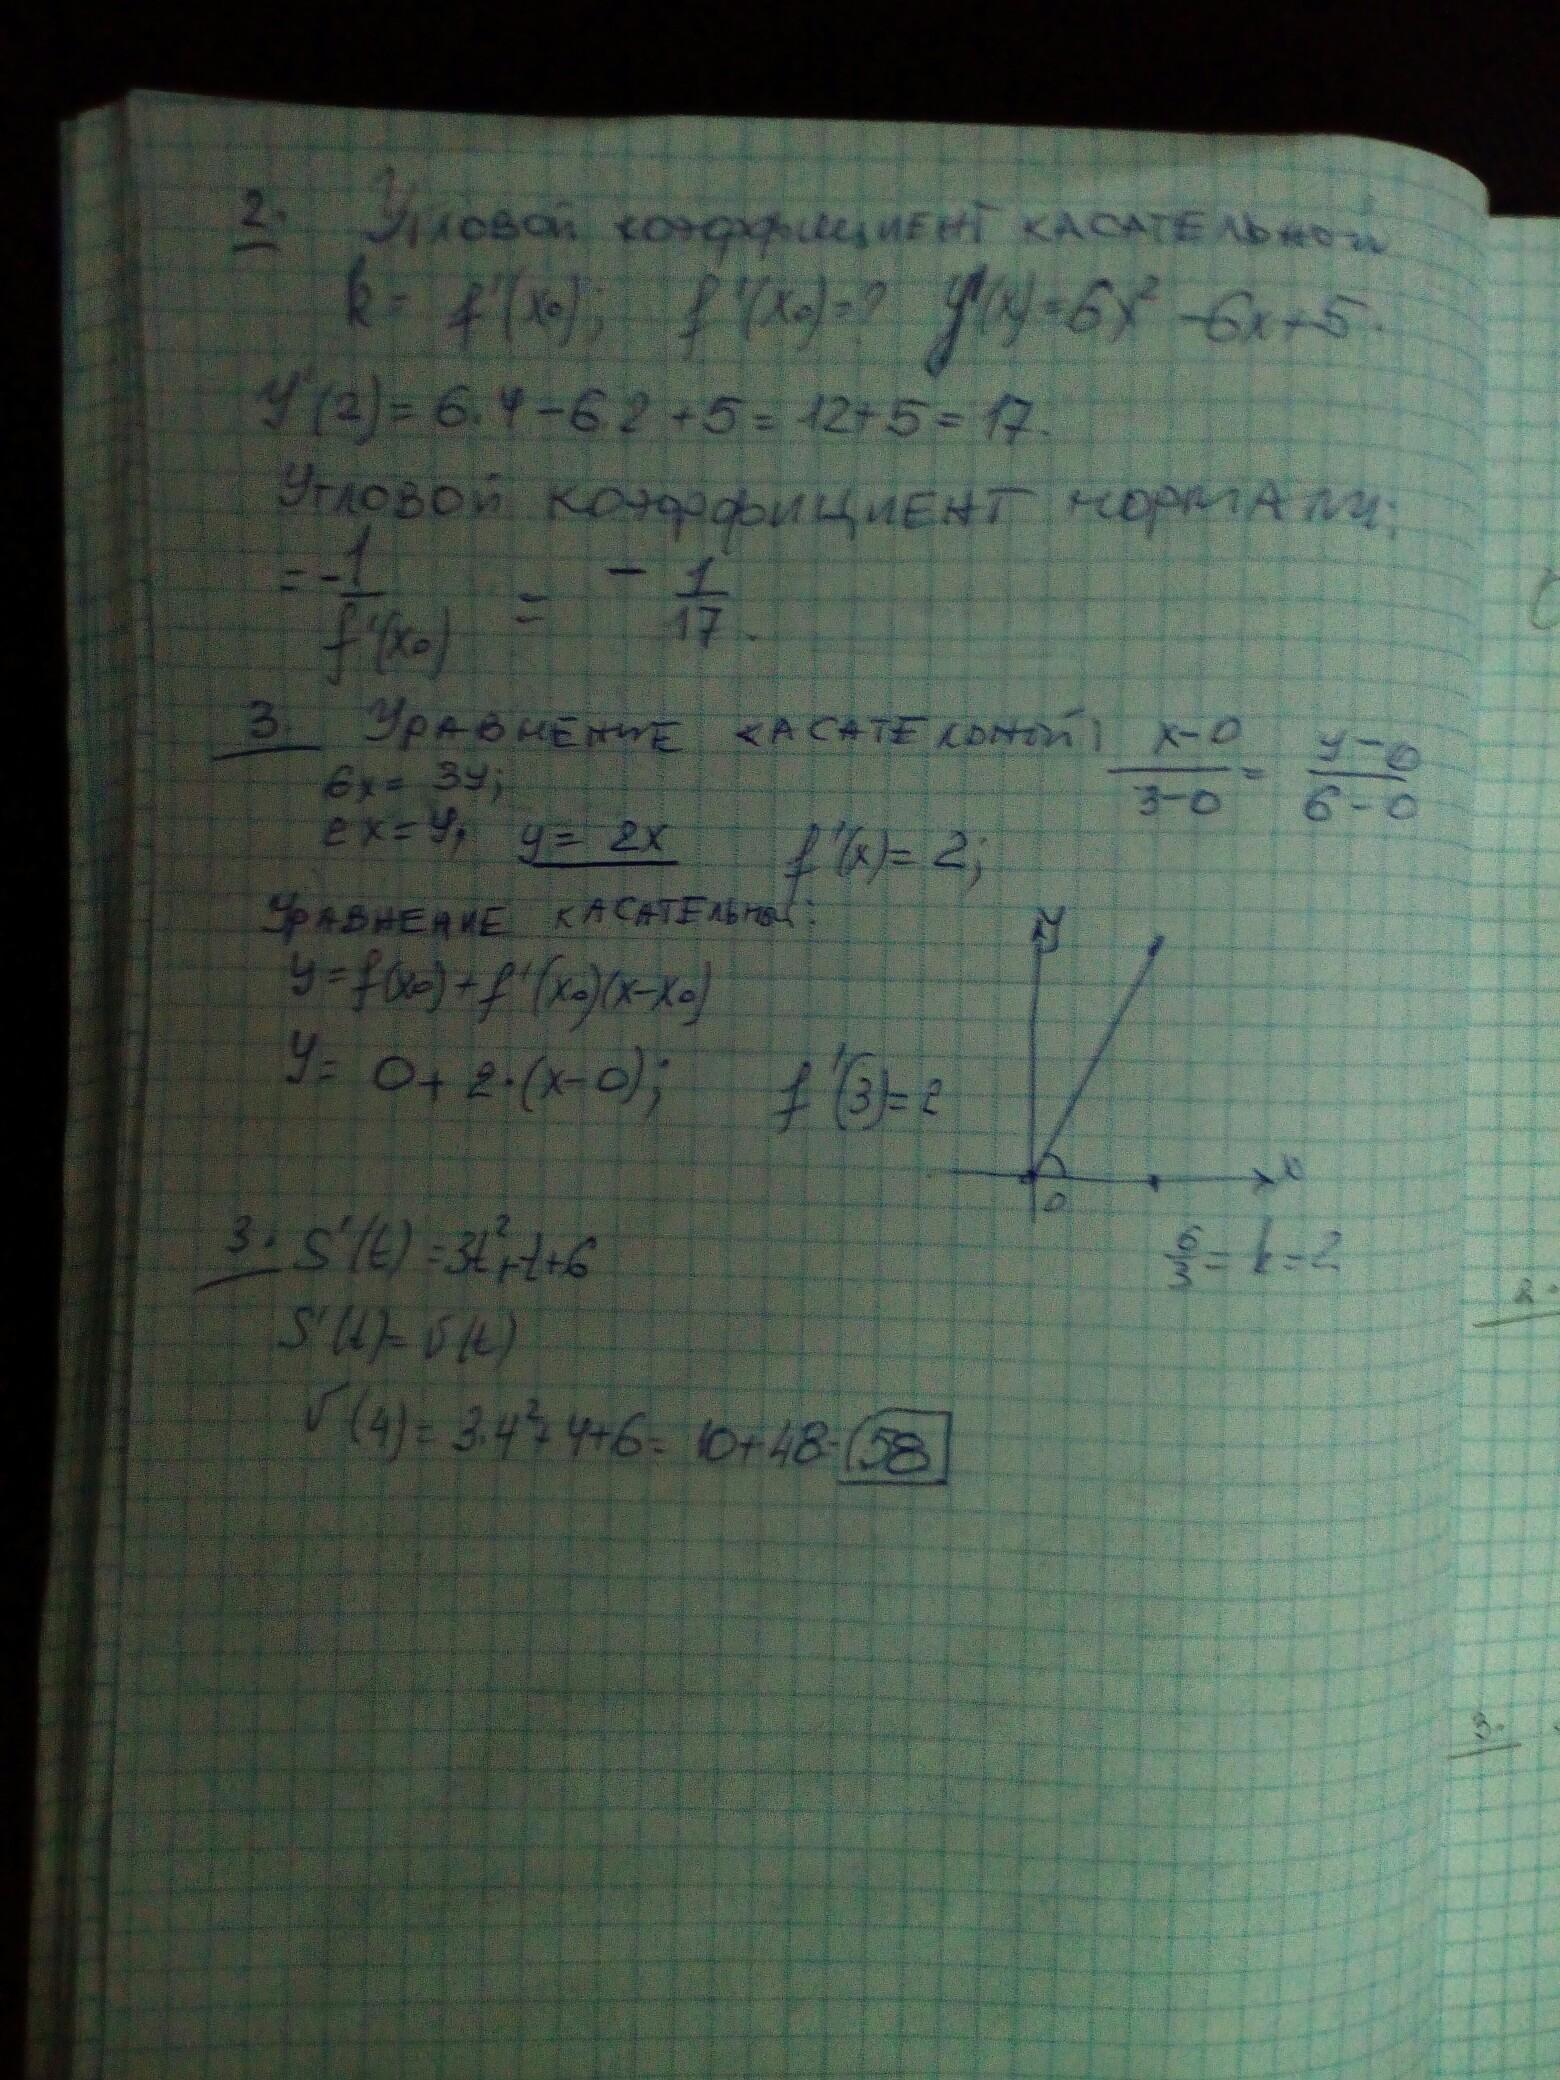 2. Угловой коэффициент касательной
k = f'(x₀); f'(x₀)=? y'(x)=6x²-6x+5.
y'(2)=6·4-6·2+5=12+5=17.
Угловой коэффициент нормали:
= -1/f'(x₀) = -1/17.
3. Уравнение касательной: (x-0)/(3-0) = (y-0)/(6-0)
6x=3y;
2x=y; y=2x f'(x)=2;
Уравнение касательной:
y=f(x₀)+f'(x₀)(x-x₀)
y= 0+2·(x-0); f'(3)=2
y
x
0
6/3=k=2
3. S'(t)=3t²+t+6
S'(t)=v(t)
v(4)=3·4²+4+6=10+48=58
2.
3.